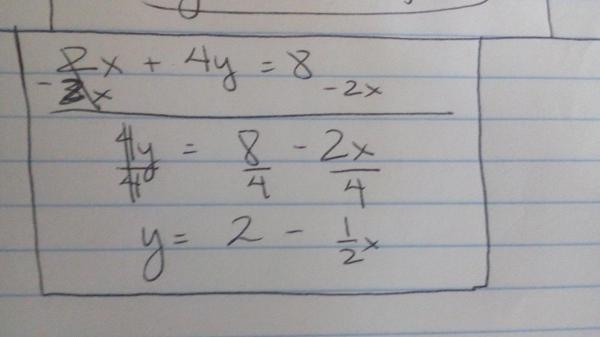 2x + 4y = 8
-2x -2x
4y/4 = 8/4 - 2x/4
y = 2 - 1/2x